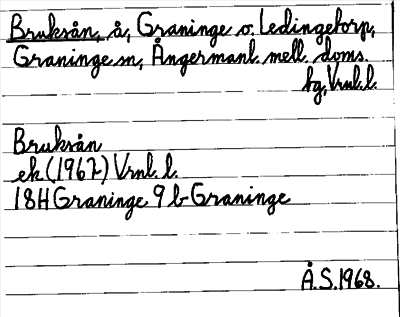 Bruksån, å, Graninge o. Ledingetorp,
Graninge sn, Ångermanl. mell. doms.
hg, Vnl. l.
Bruksån
ek (1962) Vrnl. l.
18H Graninge 9 b Graninge
Å.S. 1968.